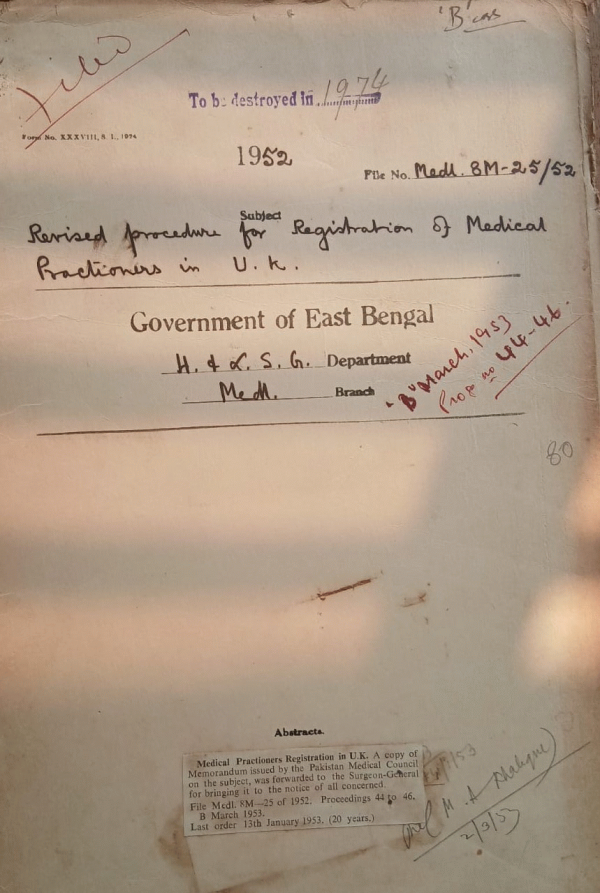 'B' class
Filed
To be destroyed in 1974
Form No. XXXVIII, S. I., 1974
1952
File No. Medl. 8M-25/52
Subject
Revised procedure for Registration of Medical
Practioners in U. K.
Government of East Bengal
H. & L. S. G. Department
Medl. Branch
"B" March, 1953
Progs no 44-46.
80
Abstracts.
Medical Practitioners Registration in U.K. A copy of
Memorandum issued by the Pakistan Medical Council
on the subject, was forwarded to the Surgeon-General
for bringing it to the notice of all concerned.
File Medl. 8M—25 of 1952. Proceedings 44 to 46.
B March 1953.
Last order 13th January 1953. (20 years.)
2/3/53